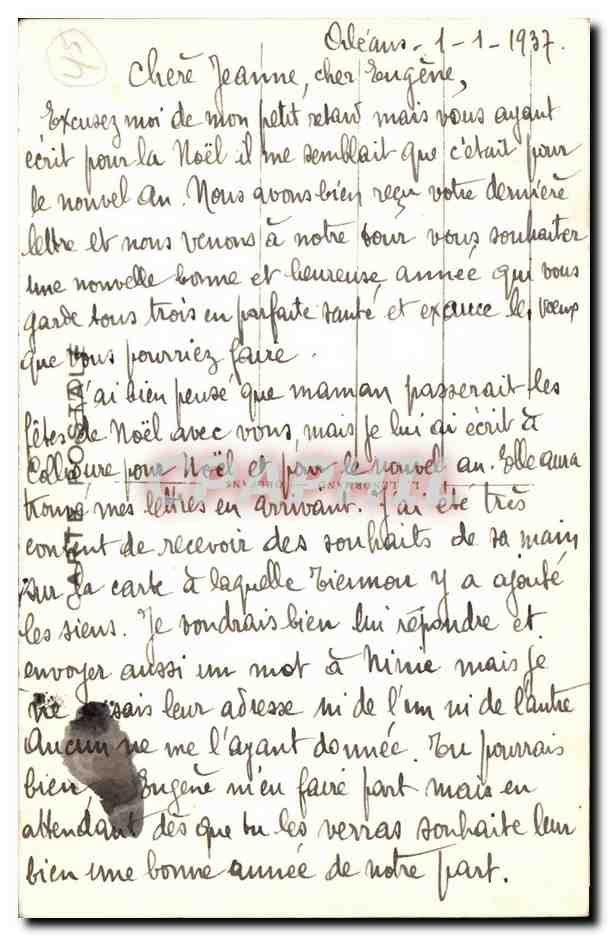 45
Orléans - 1-1-1937.
Chère Jeanne, cher Eugène,
Excusez moi de mon petit retard mais vous ayant
écrit pour la Noël il me semblait que c'était pour
le nouvel an. Nous avons bien reçu votre dernière
lettre et nous venons à notre tour vous souhaiter
une nouvelle bonne et heureuse année qui vous
garde tous trois en parfaite santé et exauce les voeux
que vous pourriez faire.
J'ai bien pensé que maman passerait les
fêtes de Noël avec vous, mais je lui ai écrit à
Collioure pour Noël et pour le nouvel an. Elle aura
trouvé mes lettres en arrivant. J'ai été très
content de recevoir des souhaits de sa main
sur la carte à laquelle a ajouté
les siens. Je voudrais bien lui répondre et
envoyer aussi un mot à mais je
ne sais leur adresse ni de l'un ni de l'autre
Aucun ne me l'ayant donnée. Tu pourrais
bien Eugène m'en faire part mais en
attendant dès que tu les verras souhaite leur
bien une bonne année de notre part.
CARTE POSTALE
CPAPHIL